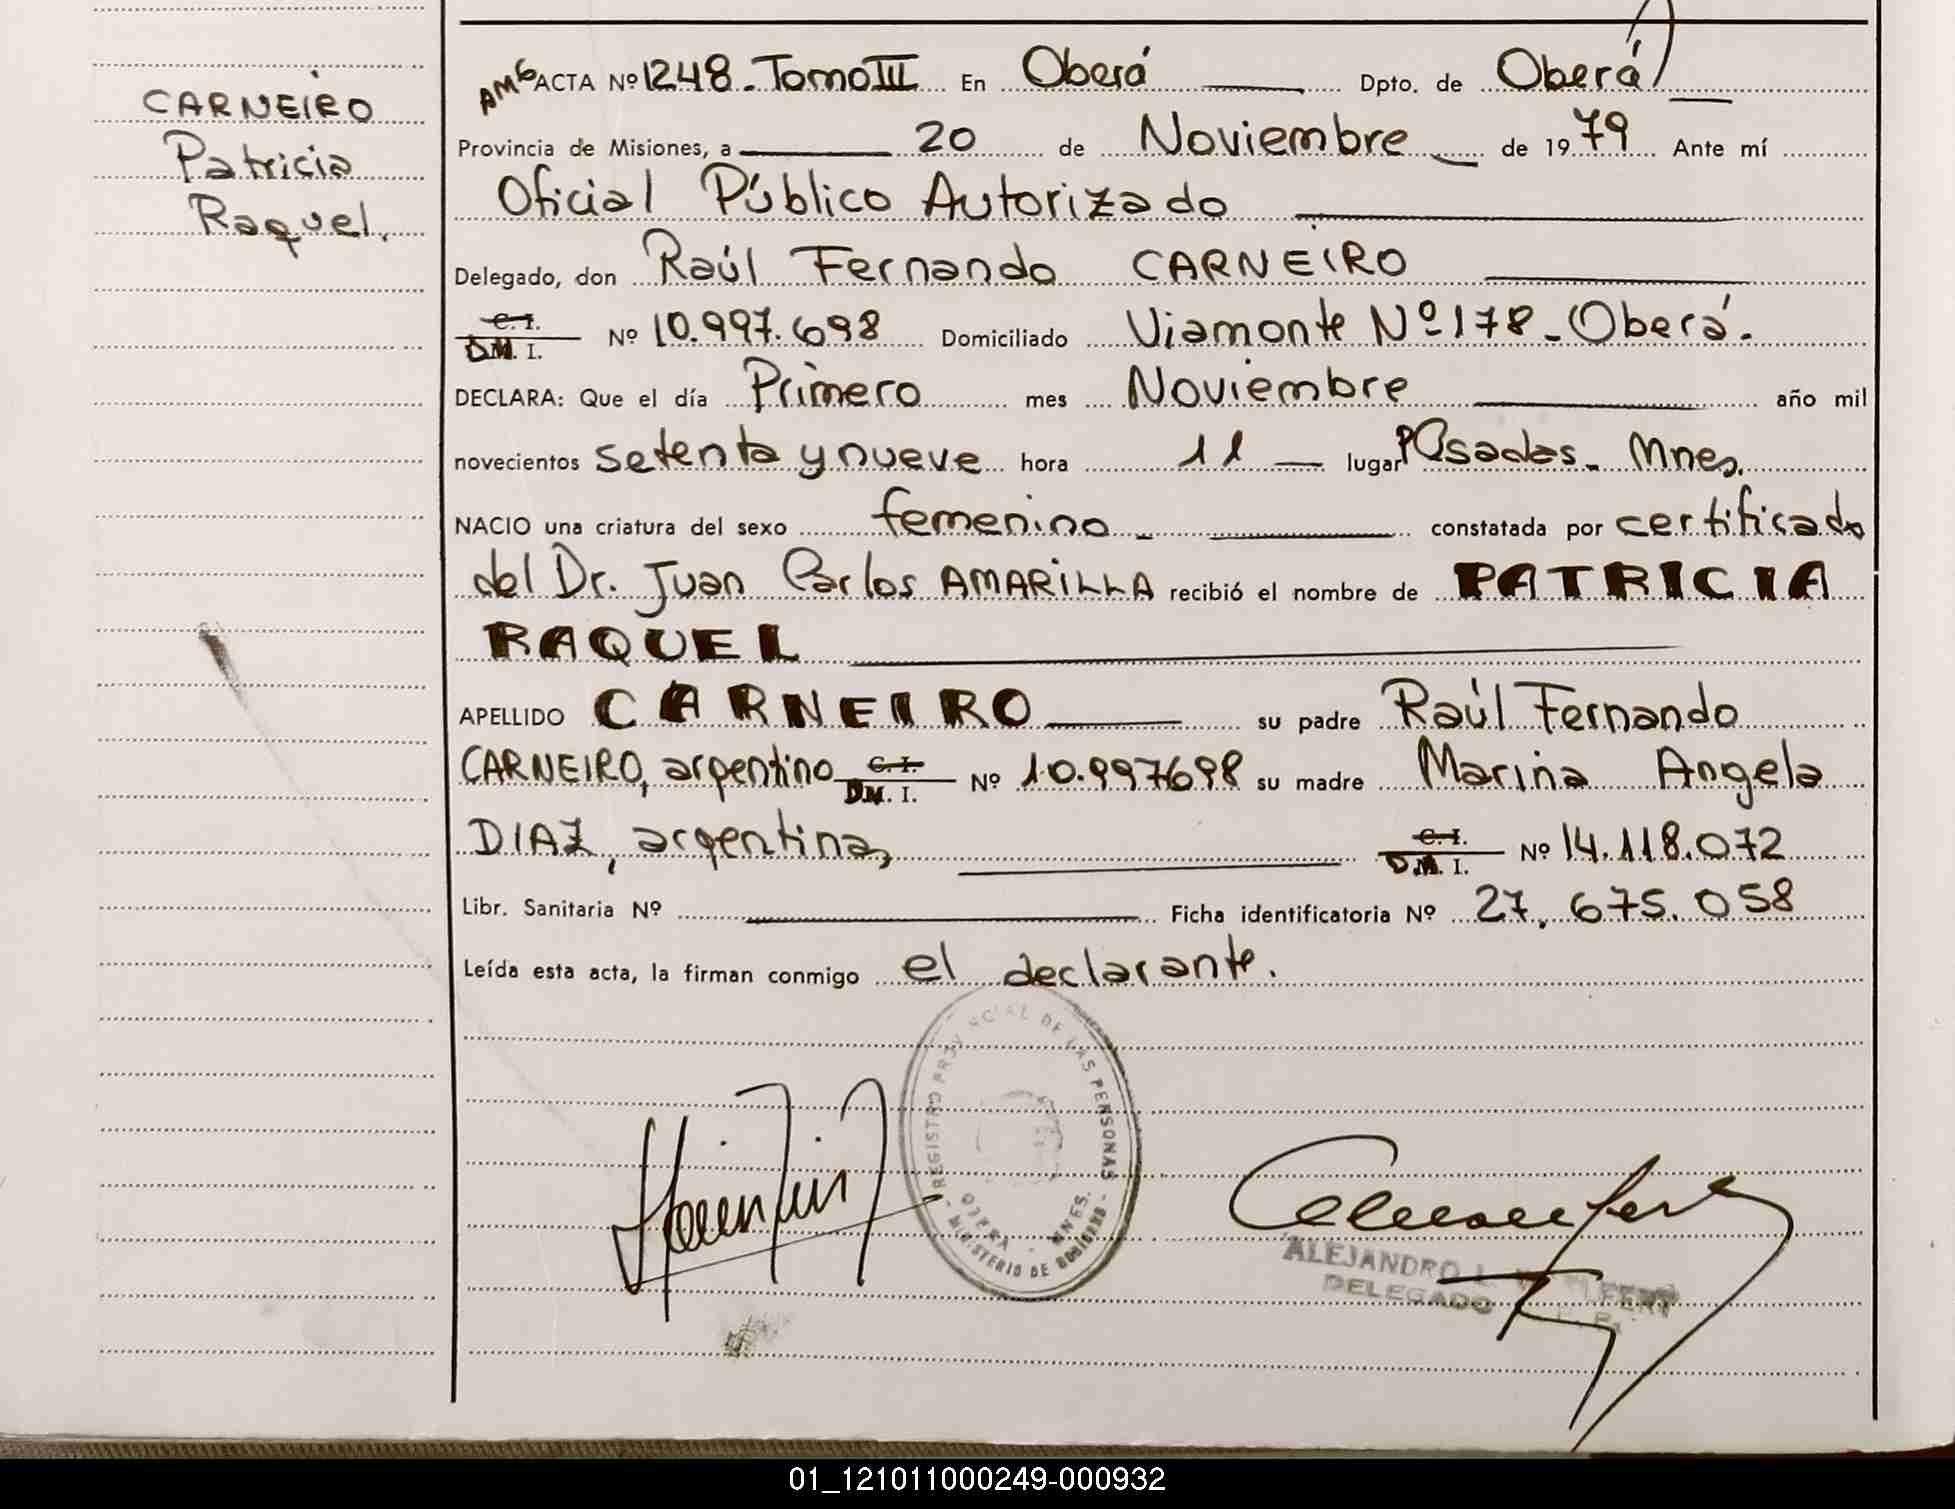 CARNEIRO
Patricia
Raquel.
AMG ACTA Nº 1248. Tomo III En Oberá Dpto. de Oberá
Provincia de Misiones, a 20 de Noviembre de 1979 Ante mí
Oficial Público Autorizado
Delegado, don Raúl Fernando CARNEIRO
C. I.
D.M. I. Nº 10.997.698 Domiciliado Viamonte Nº 178 - Oberá.
DECLARA: Que el día Primero mes Noviembre año mil
novecientos setenta y nueve hora 11 lugar Posadas - Mnes.
NACIO una criatura del sexo femenino constatada por certificado
del Dr. Juan Carlos AMARILLA recibió el nombre de PATRICIA
RAQUEL
APELLIDO CARNEIRO su padre Raúl Fernando
CARNEIRO, argentino C. I. D.M. I. Nº 10.997698 su madre Marina Angela
DIAZ, argentina, C. I. D.M. I. Nº 14.118.072
Libr. Sanitaria Nº Ficha identificatoria Nº 27.675.058
Leída esta acta, la firman conmigo el declarante.
REGISTRO PROVINCIAL DE LAS PERSONAS
OBERA - MNES.
MINISTERIO DE GOBIERNO
ALEJANDRO L.
DELEGADO
01_121011000249-000932